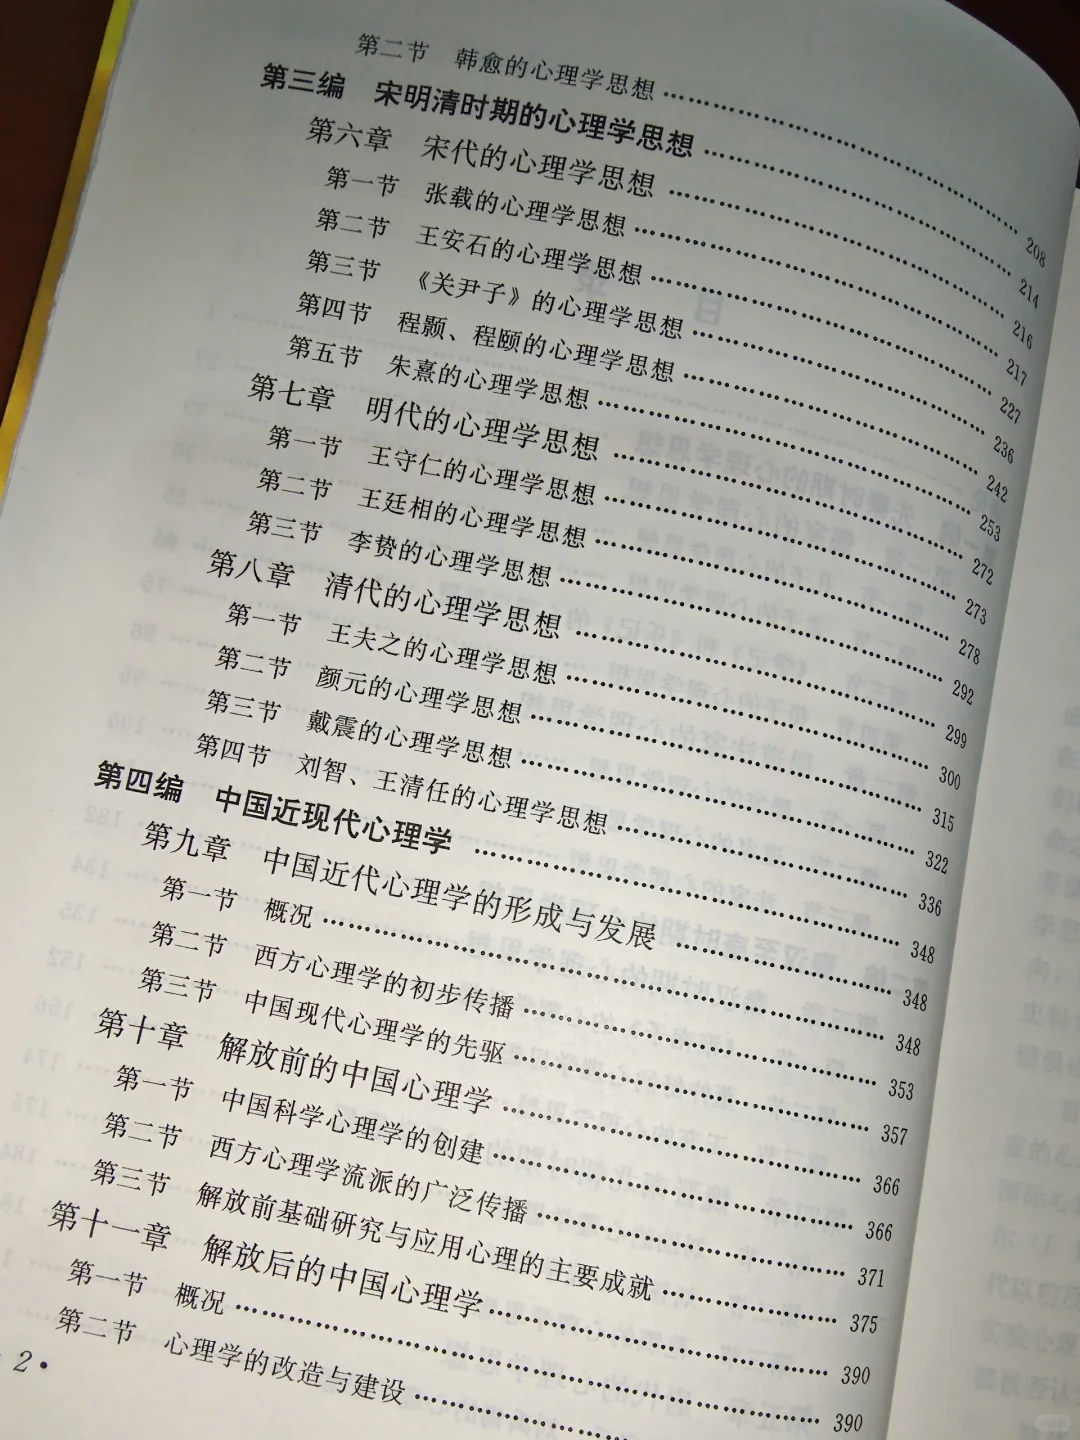 第二节 韩愈的心理学思想 …… 208
第三编 宋明清时期的心理学思想 …… 214
第六章 宋代的心理学思想 …… 216
第一节 张载的心理学思想 …… 217
第二节 王安石的心理学思想 …… 227
第三节 《关尹子》的心理学思想 …… 236
第四节 程颢、程颐的心理学思想 …… 242
第五节 朱熹的心理学思想 …… 253
第七章 明代的心理学思想 …… 272
第一节 王守仁的心理学思想 …… 273
第二节 王廷相的心理学思想 …… 278
第三节 李贽的心理学思想 …… 292
第八章 清代的心理学思想 …… 299
第一节 王夫之的心理学思想 …… 300
第二节 颜元的心理学思想 …… 315
第三节 戴震的心理学思想 …… 322
第四节 刘智、王清任的心理学思想 …… 336
第四编 中国近现代心理学 …… 348
第九章 中国近代心理学的形成与发展 …… 348
第一节 概况 …… 348
第二节 西方心理学的初步传播 …… 353
第三节 中国现代心理学的先驱 …… 357
第十章 解放前的中国心理学 …… 366
第一节 中国科学心理学的创建 …… 366
第二节 西方心理学流派的广泛传播 …… 371
第三节 解放前基础研究与应用心理的主要成就 …… 375
第十一章 解放后的中国心理学 …… 390
第一节 概况 …… 390
第二节 心理学的改造与建设 ……
2 ·